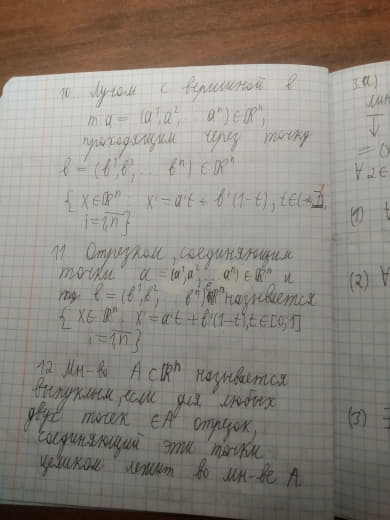 10. Лучом с вершиной в
т. a = (a¹, a², aⁿ) ∈ ℝⁿ,
проходящим через точку
b = (b¹, b², ... bⁿ) ∈ ℝⁿ
{ X ∈ ℝⁿ : Xⁱ = aⁱt + bⁱ(1-t), t ∈ (-∞, 1],
i = 1,n }
11. Отрезком, соединяющим
точки a = (a¹, a², aⁿ) ∈ ℝⁿ и
b = (b¹, b², bⁿ) называется
{ X ∈ ℝⁿ : Xⁱ = aⁱt + bⁱ(1-t), t ∈ [0;1]
i = 1,n }
12. Мн-во A ⊂ ℝⁿ называется
выпуклым, если для любых
двух точек ∈ A отрезок,
соединяющий эти точки
целиком лежит во мн-ве A
3.a)
(1)
(2)
(3)